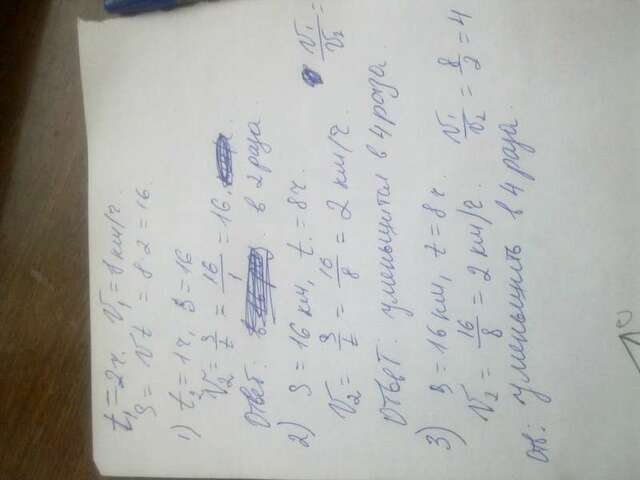 t₁ = 2ч. V₁ = 8 км/ч.
S = Vt = 8·2 = 16.
1) t₂ = 1ч, S = 16
V₂ = S/t = 16/1 = 16
Ответ: в 2 раза.
2) S = 16 км, t = 8ч. V₁/V₂ =
V₂ = S/t = 16/8 = 2 км/ч.
Ответ: уменьшится в 4 раза.
3) S = 16 км, t = 8ч.
V₂ = 16/8 = 2 км/ч. V₁/V₂ = 8/2 = 4
Отв: уменьшить в 4 раза.